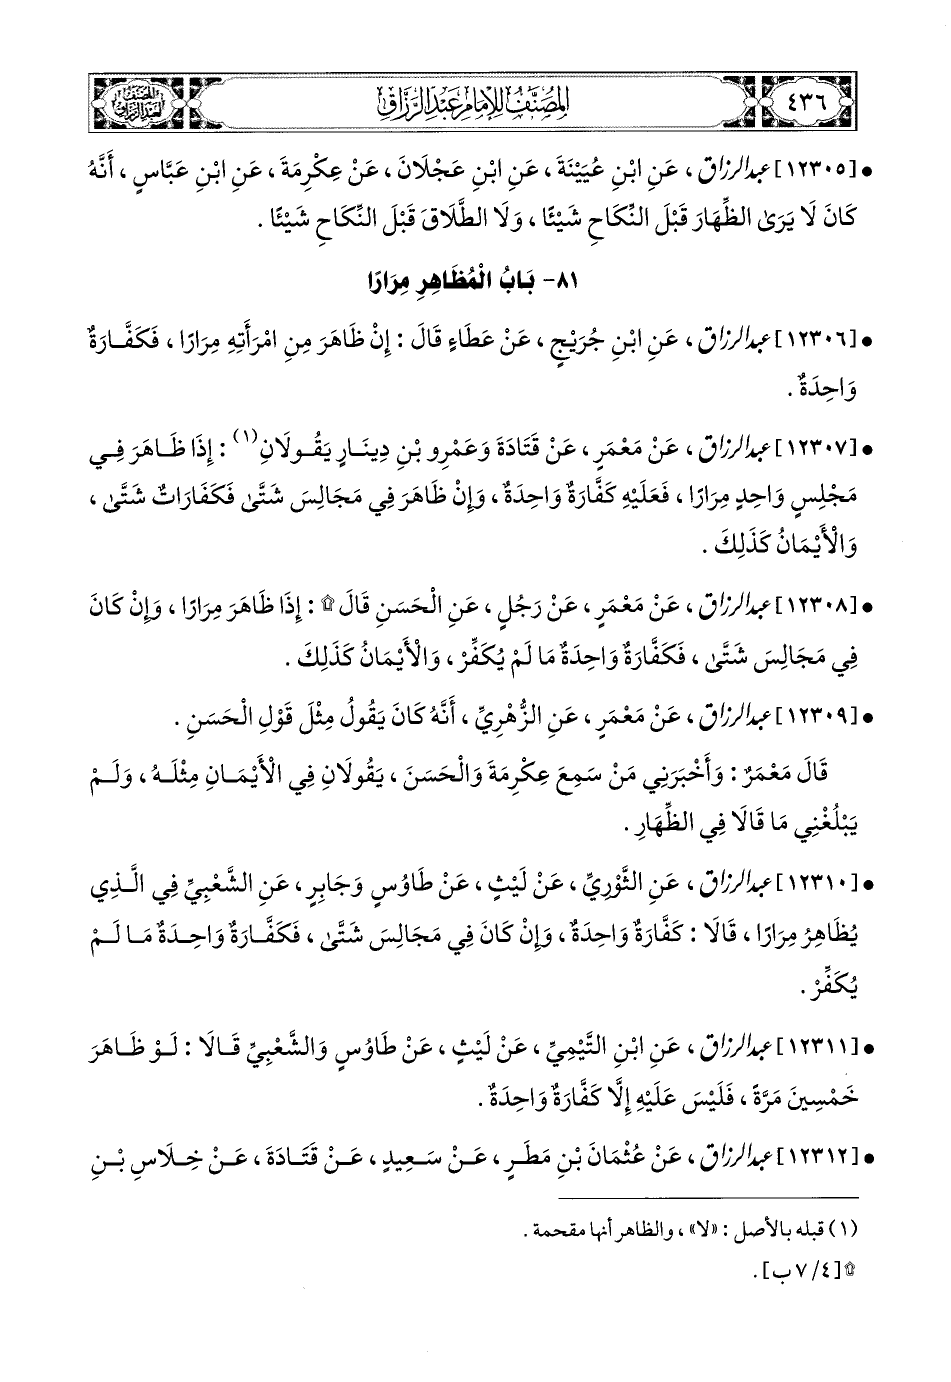 ٤٣٦
المصنف للإمام عبد الرزاق
• [١٢٣٠٥] عبد الرزاق ، عَنِ ابْنِ عُيَيْنَةَ ، عَنِ ابْنِ عَجْلَانَ ، عَنْ عِكْرِمَةَ ، عَنِ ابْنِ عَبَّاسٍ ، أَنَّهُ
كَانَ لَا يَرَىٰ الظِّهَارَ قَبْلَ النِّكَاحِ شَيْئًا ، وَلَا الطَّلَاقَ قَبْلَ النِّكَاحِ شَيْئًا .
٨١- بَابُ الْمُظَاهِرِ مِرَارًا
• [١٢٣٠٦] عبد الرزاق ، عَنِ ابْنِ جُرَيْجٍ ، عَنْ عَطَاءٍ قَالَ : إِنْ ظَاهَرَ مِنِ امْرَأَتِهِ مِرَارًا ، فَكَفَّارَةٌ
وَاحِدَةٌ .
• [١٢٣٠٧] عبد الرزاق ، عَنْ مَعْمَرٍ ، عَنْ قَتَادَةَ وَعَمْرِو بْنِ دِينَارٍ يَقُولَانِ (١) : إِذَا ظَاهَرَ فِي
مَجْلِسٍ وَاحِدٍ مِرَارًا ، فَعَلَيْهِ كَفَّارَةٌ وَاحِدَةٌ ، وَإِنْ ظَاهَرَ فِي مَجَالِسَ شَتَّىٰ فَكَفَارَاتٌ شَتَّىٰ ،
وَالْأَيْمَانُ كَذَلِكَ .
• [١٢٣٠٨] عبد الرزاق ، عَنْ مَعْمَرٍ ، عَنْ رَجُلٍ ، عَنِ الْحَسَنِ قَالَ ۩ : إِذَا ظَاهَرَ مِرَارًا ، وَإِنْ كَانَ
فِي مَجَالِسَ شَتَّىٰ ، فَكَفَّارَةٌ وَاحِدَةٌ مَا لَمْ يُكَفِّرْ ، وَالْأَيْمَانُ كَذَلِكَ .
• [١٢٣٠٩] عبد الرزاق ، عَنْ مَعْمَرٍ ، عَنِ الزُّهْرِيِّ ، أَنَّهُ كَانَ يَقُولُ مِثْلَ قَوْلِ الْحَسَنِ .
قَالَ مَعْمَرٌ : وَأَخْبَرَنِي مَنْ سَمِعَ عِكْرِمَةَ وَالْحَسَنَ ، يَقُولَانِ فِي الْأَيْمَانِ مِثْلَهُ ، وَلَمْ
يَبْلُغْنِي مَا قَالَا فِي الظِّهَارِ .
• [١٢٣١٠] عبد الرزاق ، عَنِ الثَّوْرِيِّ ، عَنْ لَيْثٍ ، عَنْ طَاوُسٍ وَجَابِرٍ ، عَنِ الشَّعْبِيِّ فِي الَّذِي
يُظَاهِرُ مِرَارًا ، قَالَا : كَفَّارَةٌ وَاحِدَةٌ ، وَإِنْ كَانَ فِي مَجَالِسَ شَتَّىٰ ، فَكَفَّارَةٌ وَاحِدَةٌ مَا لَمْ
يُكَفِّرْ .
• [١٢٣١١] عبد الرزاق ، عَنِ ابْنِ التَّيْمِيِّ ، عَنْ لَيْثٍ ، عَنْ طَاوُسٍ وَالشَّعْبِيِّ قَالَا : لَوْ ظَاهَرَ
خَمْسِينَ مَرَّةً ، فَلَيْسَ عَلَيْهِ إِلَّا كَفَّارَةٌ وَاحِدَةٌ .
• [١٢٣١٢] عبد الرزاق ، عَنْ عُثْمَانَ بْنِ مَطَرٍ ، عَنْ سَعِيدٍ ، عَنْ قَتَادَةَ ، عَنْ خِلَاسِ بْنِ
(١) قبله بالأصل : «لا» ، والظاهر أنها مقحمة .
۩ [٧/٤ ب] .